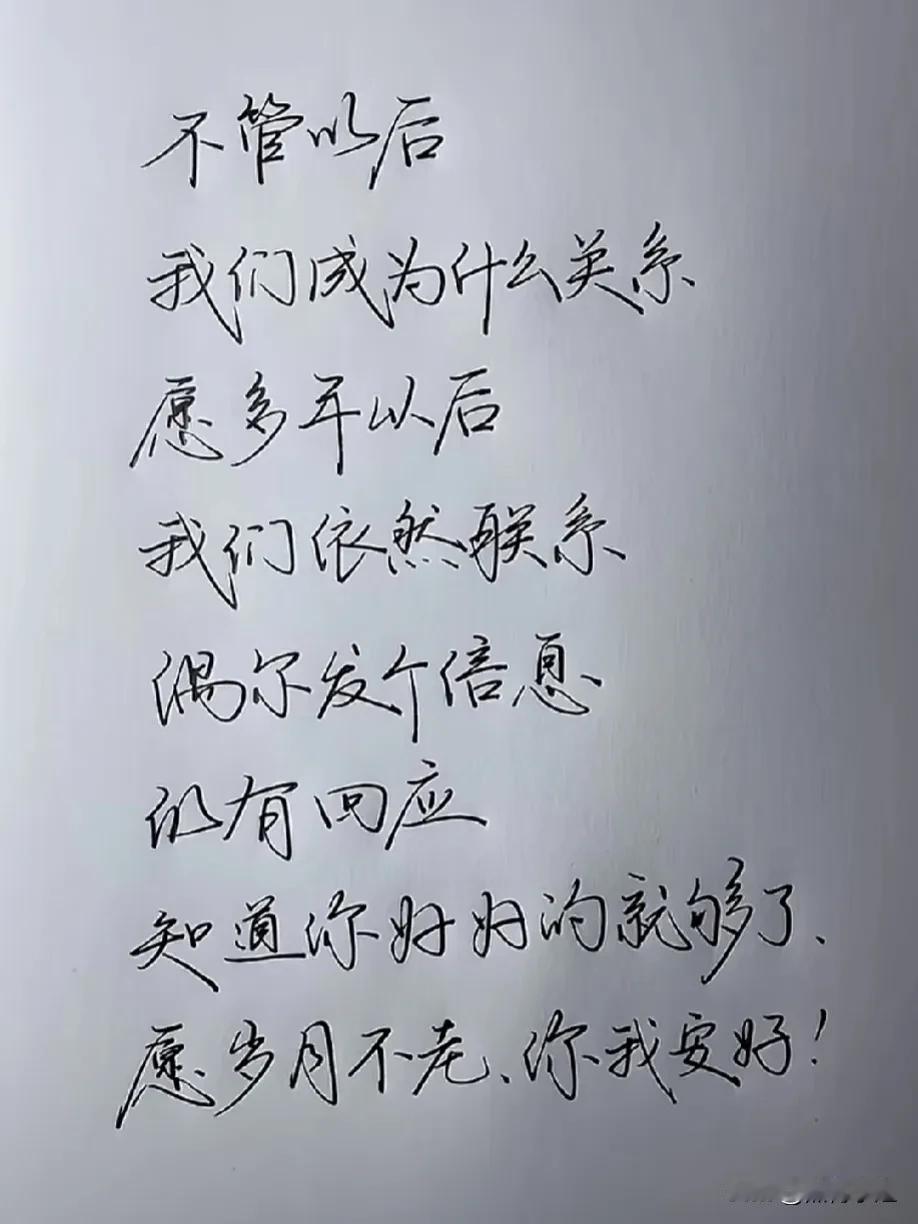 不管以后
我们成为什么关系
愿多年以后
我们依然联系
偶尔发个信息
仍有回应
知道你好好的就够了、
愿岁月不老、你我安好！